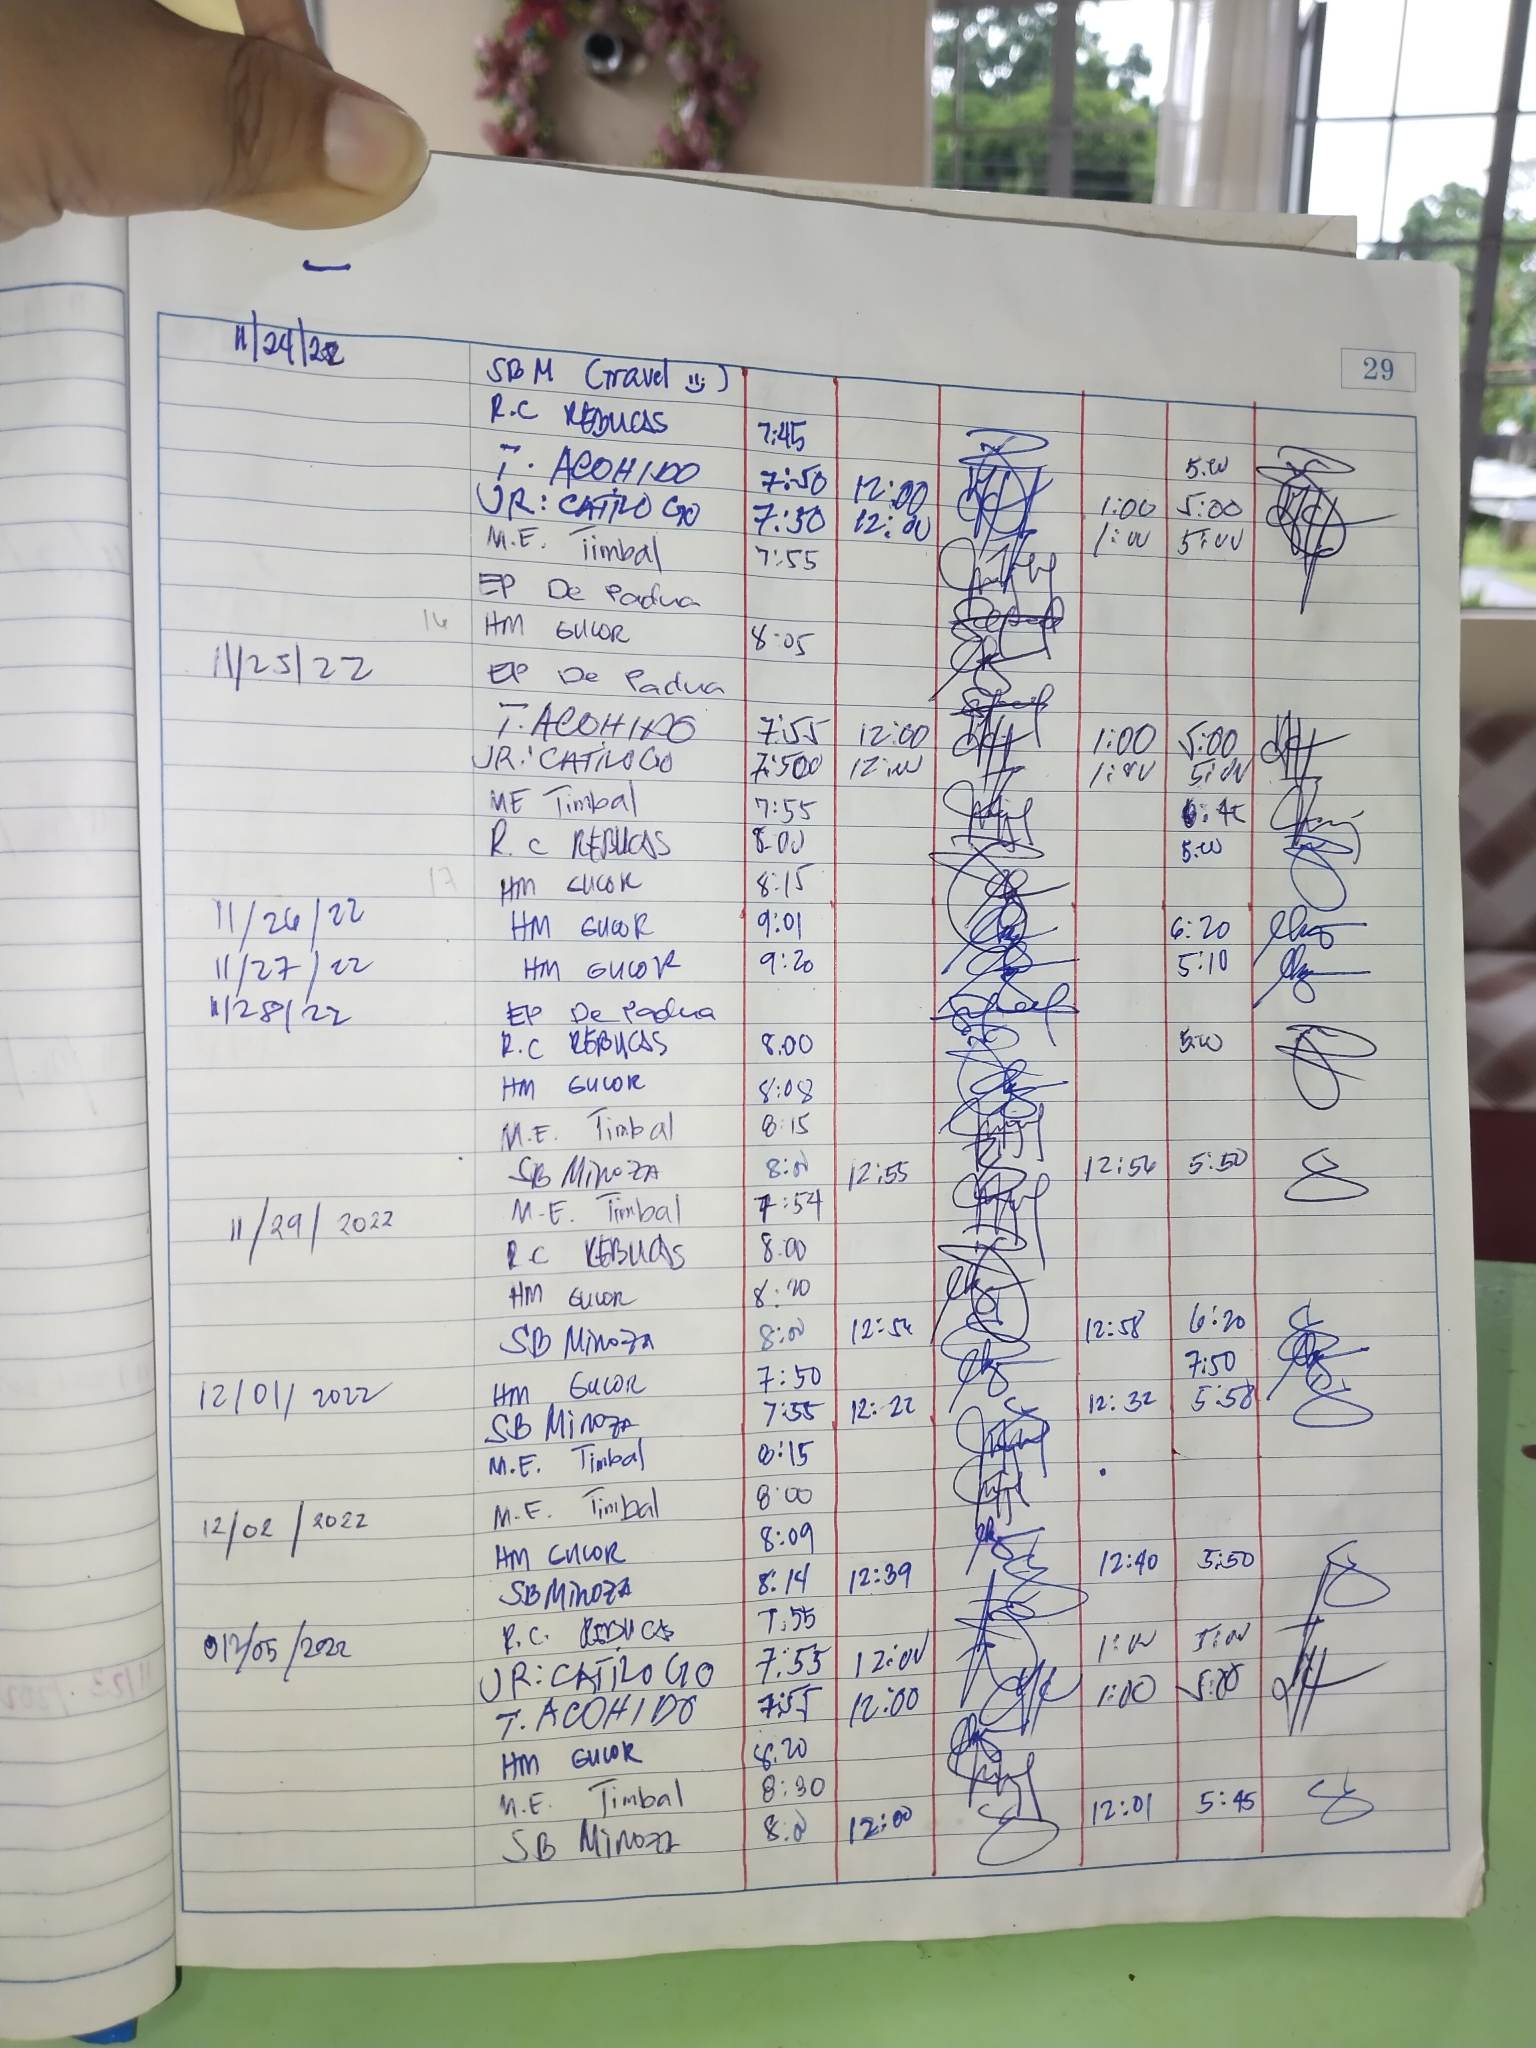 29
11/24/22 SBM (Travel)
R.C REBUCAS 7:45 5:00
T. ACOHIDO 7:50 12:00 1:00 5:00
JR: CATILOGO 7:30 12:00 1:00 5:00
M.E. Timbal 7:55
EP De Padua
14 HM GUCOR 8:05
11/25/22 EP De Padua
T. ACOHIDO 7:55 12:00 1:00 5:00
JR: CATILOGO 12:00 1:00 5:00
ME Timbal 7:55
R.C REBUCAS 8:00 5:00
17 HM GUCOR 8:15
11/26/22 HM GUCOR 9:01 6:20
11/27/22 HM GUCOR 9:20 5:10
11/28/22 EP De Padua
R.C REBUCAS 8:00 5:00
HM GUCOR 8:08
M.E. Timbal 8:15
SB MINOZA 8:00 12:55 12:56 5:50
11/29/2022 M.E. Timbal 7:54
R.C REBUCAS 8:00
HM GUCOR 8:20
SB MINOZA 8:00 12:56 12:58 6:20
12/01/2022 HM GUCOR 7:50 7:50
SB MINOZA 7:55 12:22 12:32 5:58
M.E. Timbal 8:15
12/02/2022 M.E. Timbal 8:00
HM GUCOR 8:09
SB MINOZA 8:14 12:39 12:40 5:50
12/05/2022 R.C. REBUCAS 7:55
JR: CATILOGO 7:55 12:00 1:00 5:00
T. ACOHIDO 7:55 12:00 1:00 5:00
HM GUCOR 8:20
M.E. Timbal 8:30
SB MINOZA 8:0 12:00 12:01 5:45